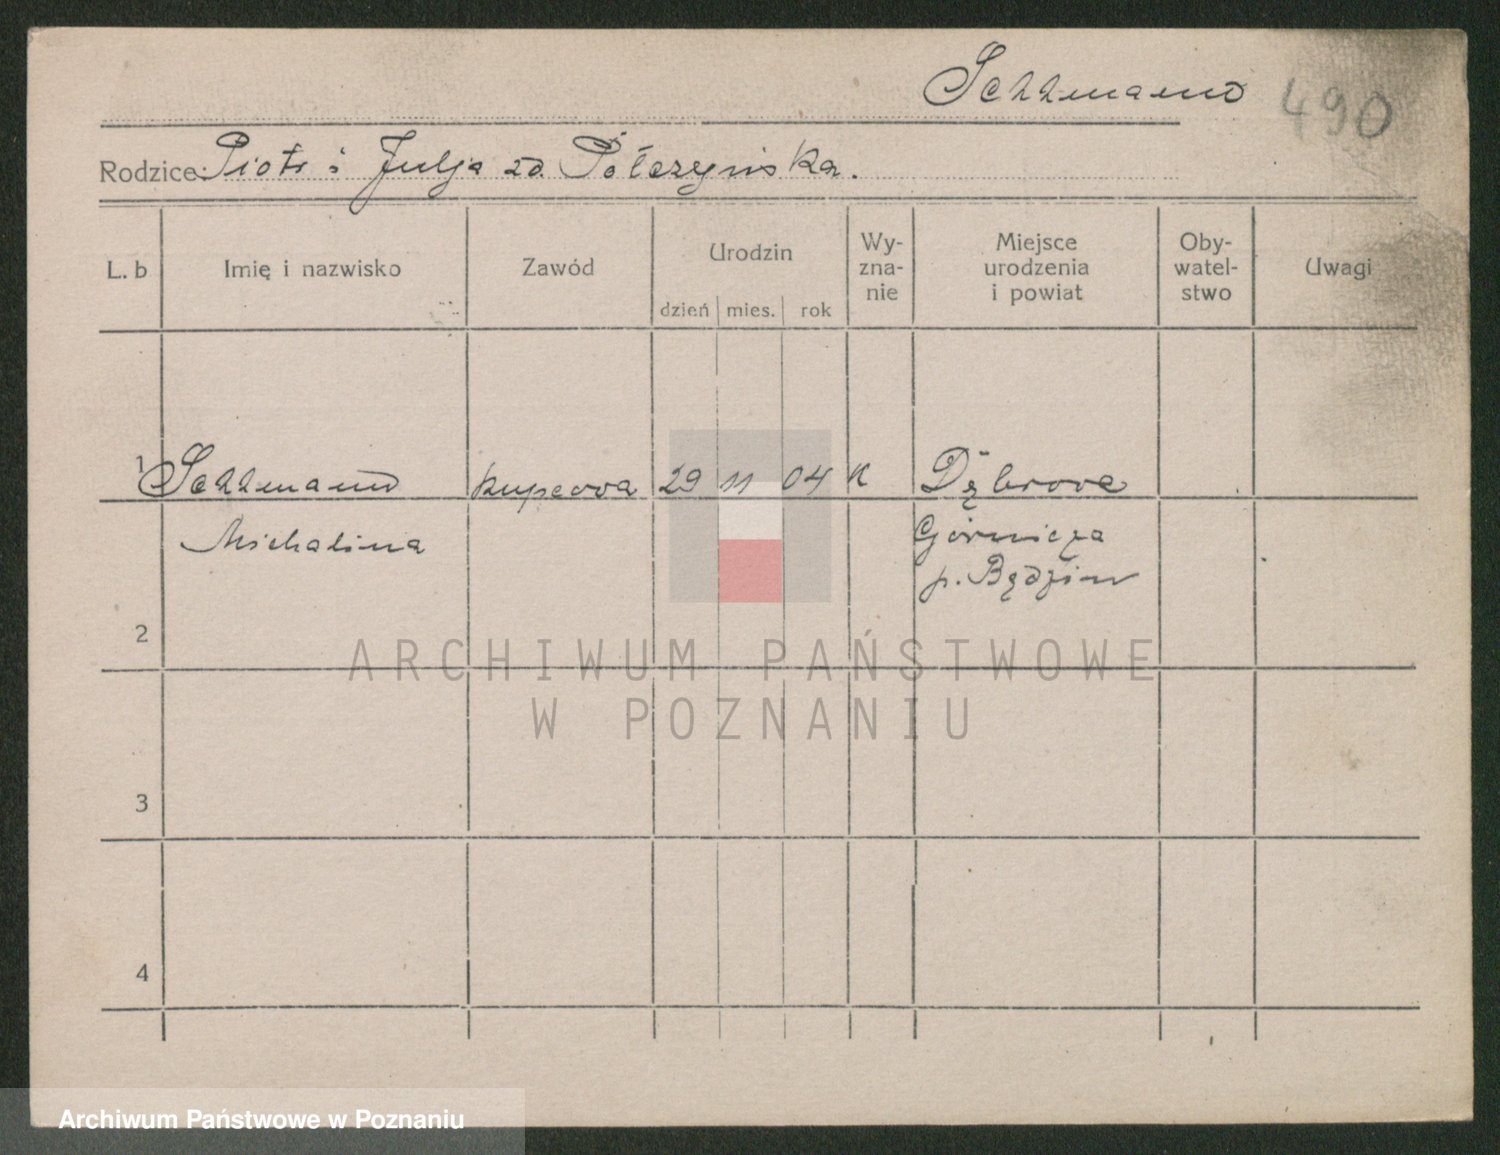 Sehhmand 490
Rodzice: Piotr i Julja zd. Połczyńska.
L. b Imię i nazwisko Zawód Urodzin Wy-zna-nie Miejsce urodzenia i powiat Oby-watel-stwo Uwagi
dzień mies. rok
1 kupcowa 29 11 04 K Dębrowa
Michalina Górnicza
p. Będzin
2
ARCHIWUM PAŃSTWOWE
W POZNANIU
3
4
Archiwum Państwowe w Poznaniu